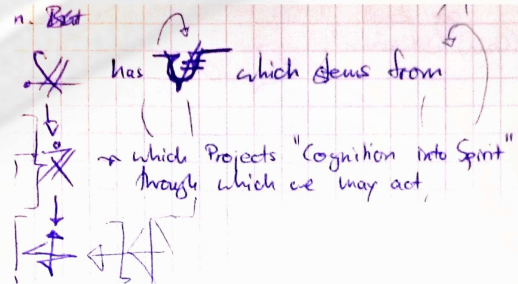 n. But
has which stems from
→ which Projects "Cognition into Spirit"
through which we may act,